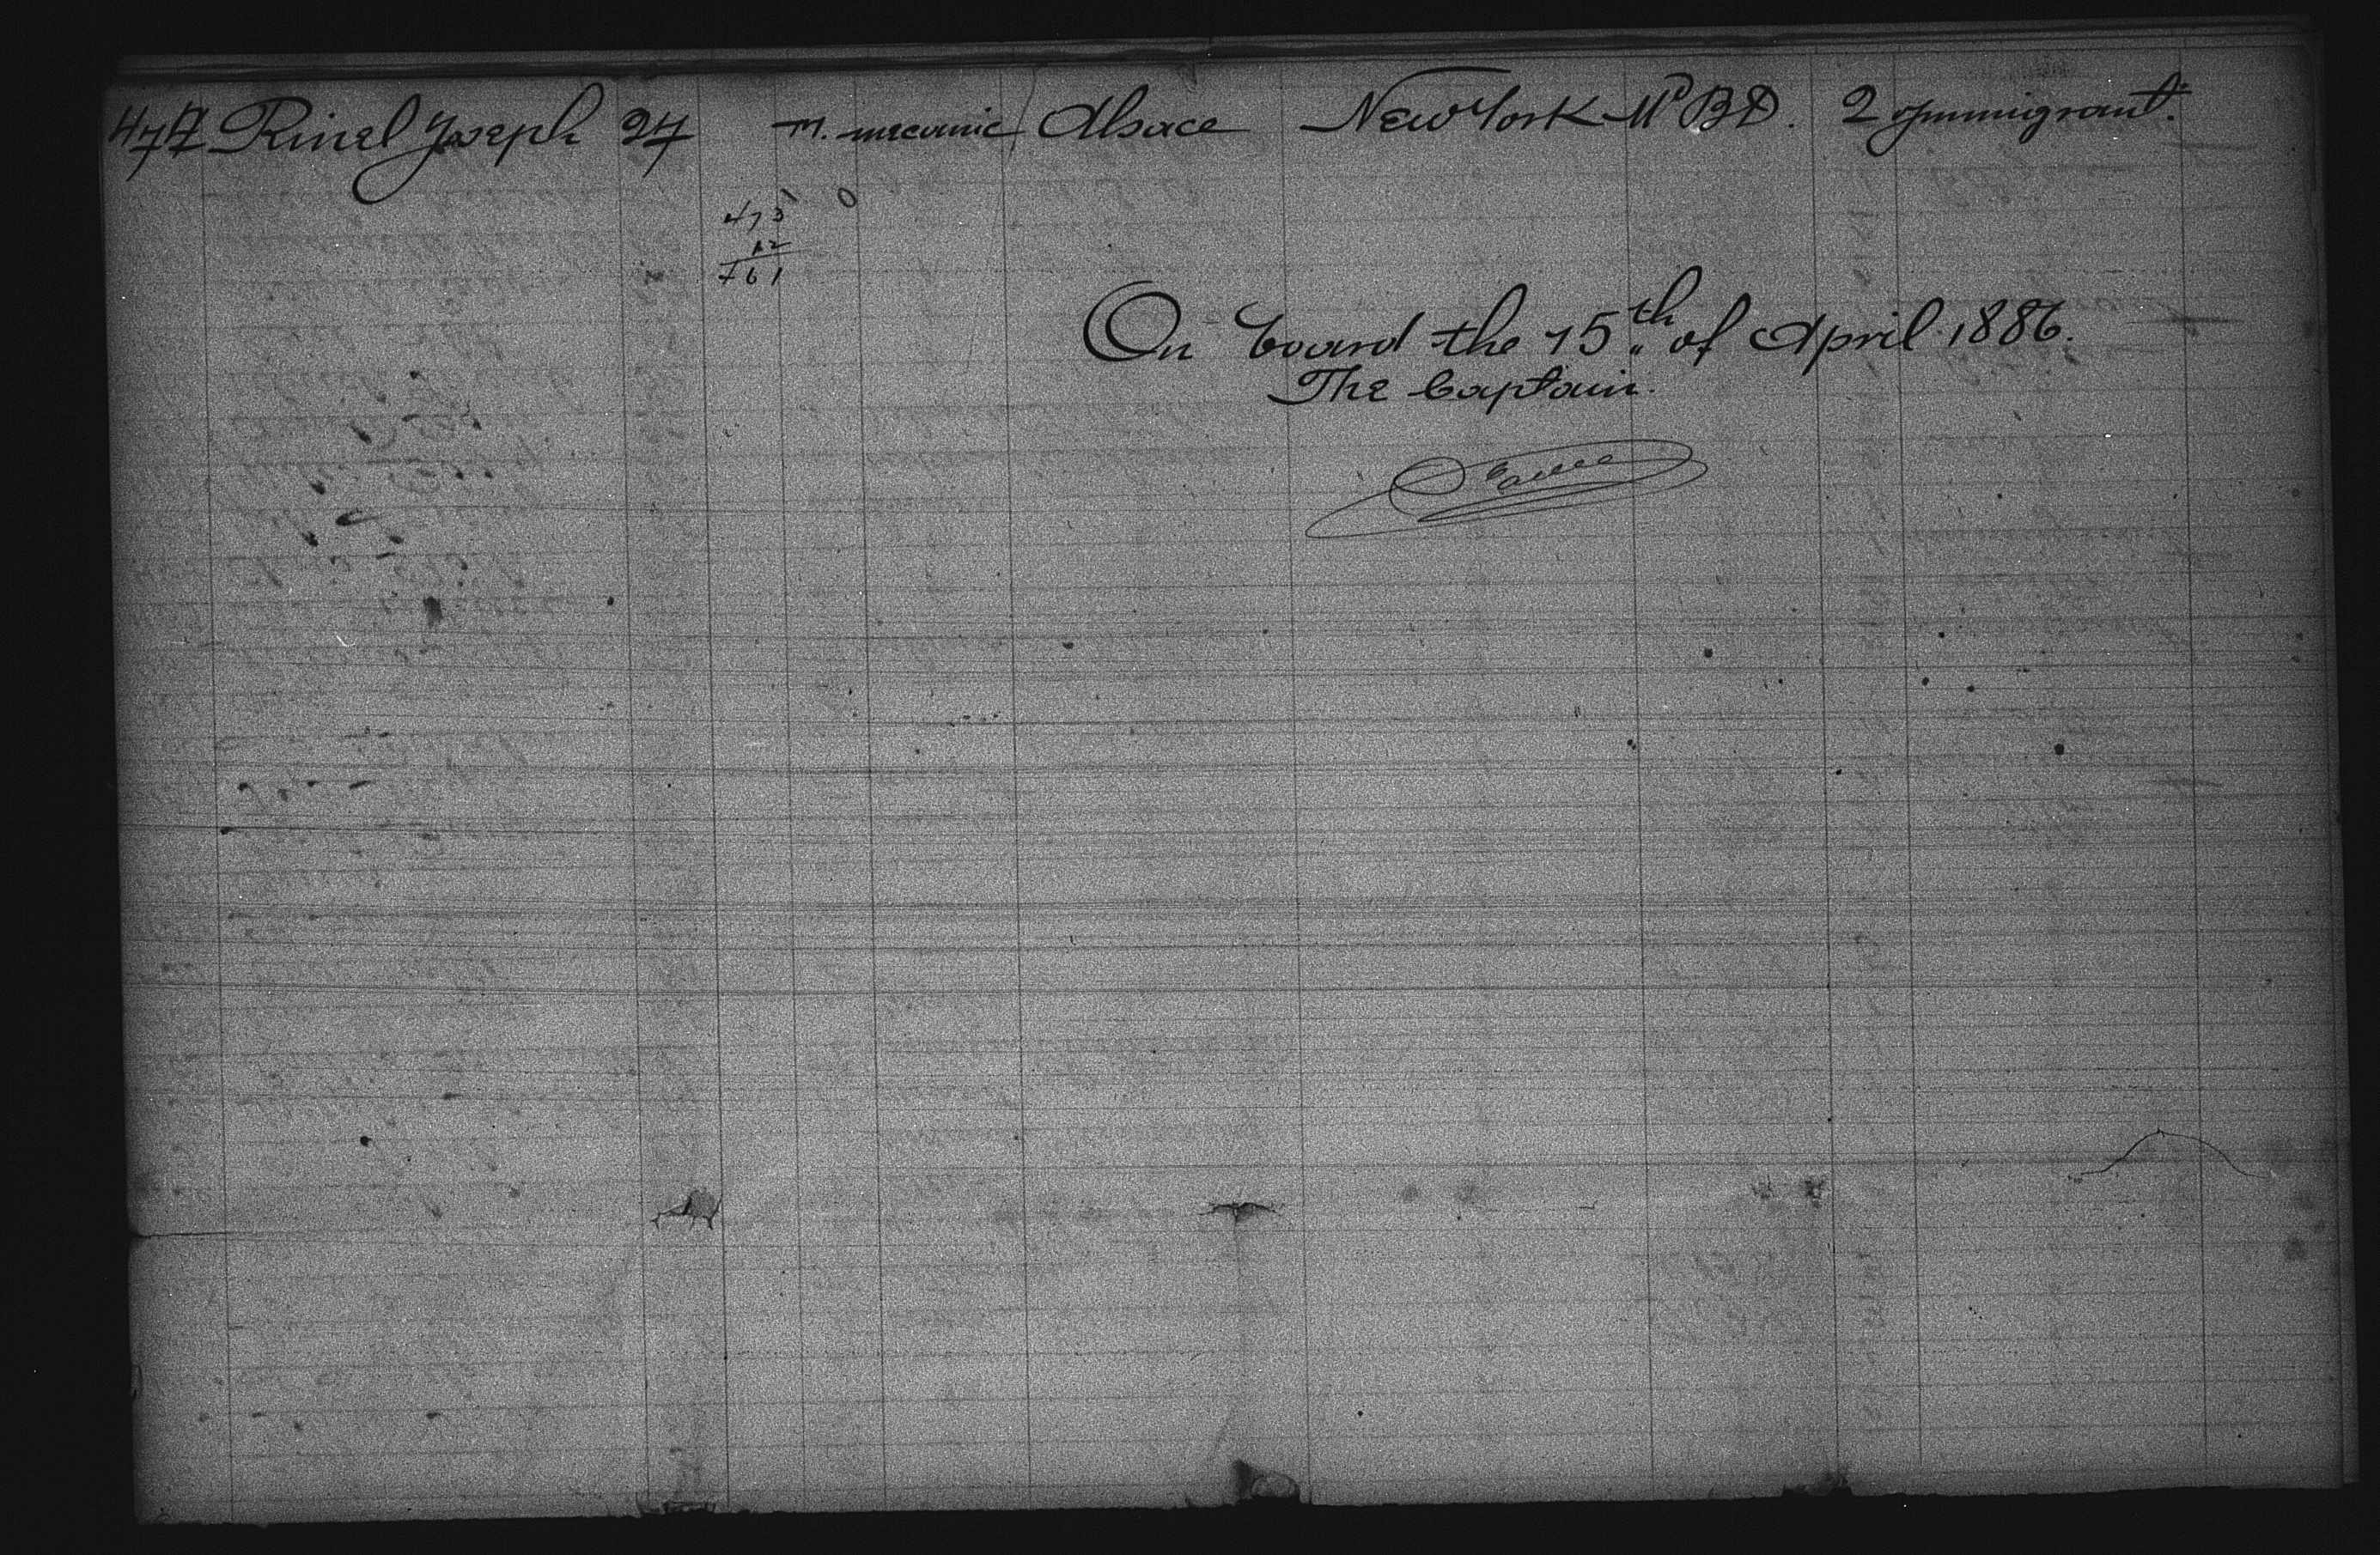 477 Rinel Joseph 27 m. mecanic Alsace New York Nº BD. 2 Immigrant.
475 0
12
461
On board the 15th of April 1886.
The Captain.